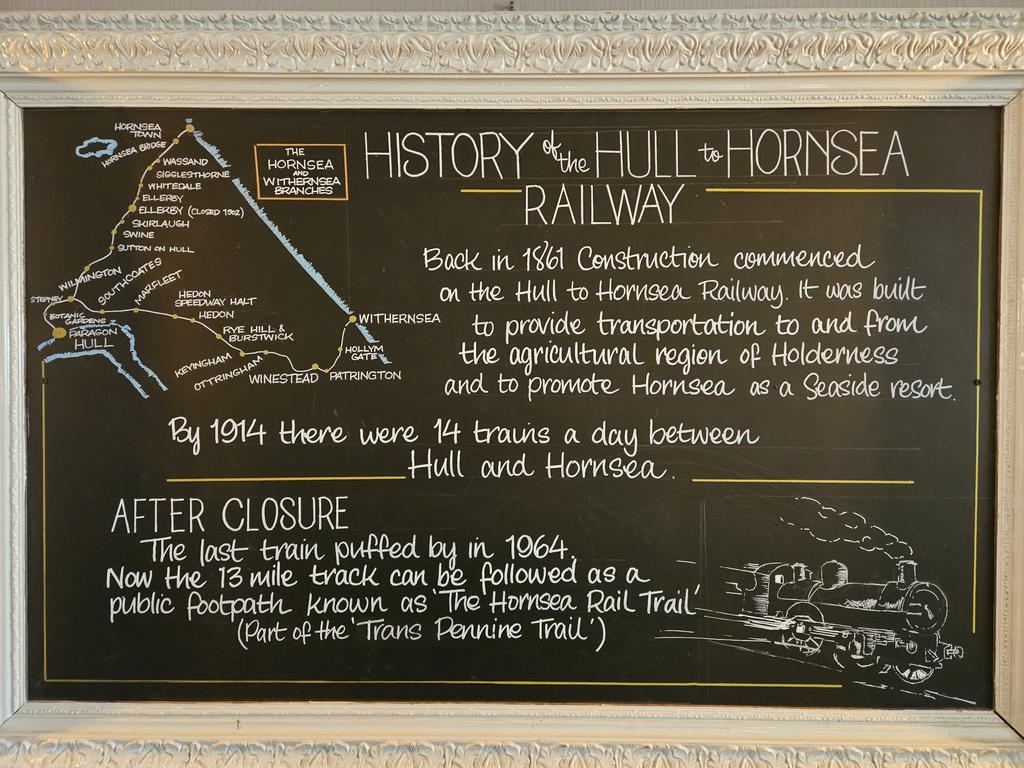 HISTORY of the HULL to HORNSEA
RAILWAY
THE
HORNSEA
AND
WITHERNSEA
BRANCHES
HORNSEA
TOWN
HORNSEA BRIDGE
WASSAND
SIGGLESTHORNE
WHITEDALE
ELLERBY
ELLERBY (CLOSED 1902)
SKIRLAUGH
SWINE
SUTTON ON HULL
WILMINGTON
STEPNEY
SOUTHCOATES
MARFLEET
BOTANIC
GARDENS
PARAGON
HULL
HEDON
SPEEDWAY HALT
HEDON
RYE HILL &
BURSTWICK
KEYINGHAM
OTTRINGHAM
WINESTEAD
PATRINGTON
HOLLYM
GATE
WITHERNSEA
Back in 1861 Construction commenced
on the Hull to Hornsea Railway. It was built
to provide transportation to and from
the agricultural region of Holderness
and to promote Hornsea as a Seaside resort.
By 1914 there were 14 trains a day between
Hull and Hornsea.
AFTER CLOSURE
The last train puffed by in 1964.
Now the 13 mile track can be followed as a
public footpath known as 'The Hornsea Rail Trail'
(Part of the 'Trans Pennine Trail')